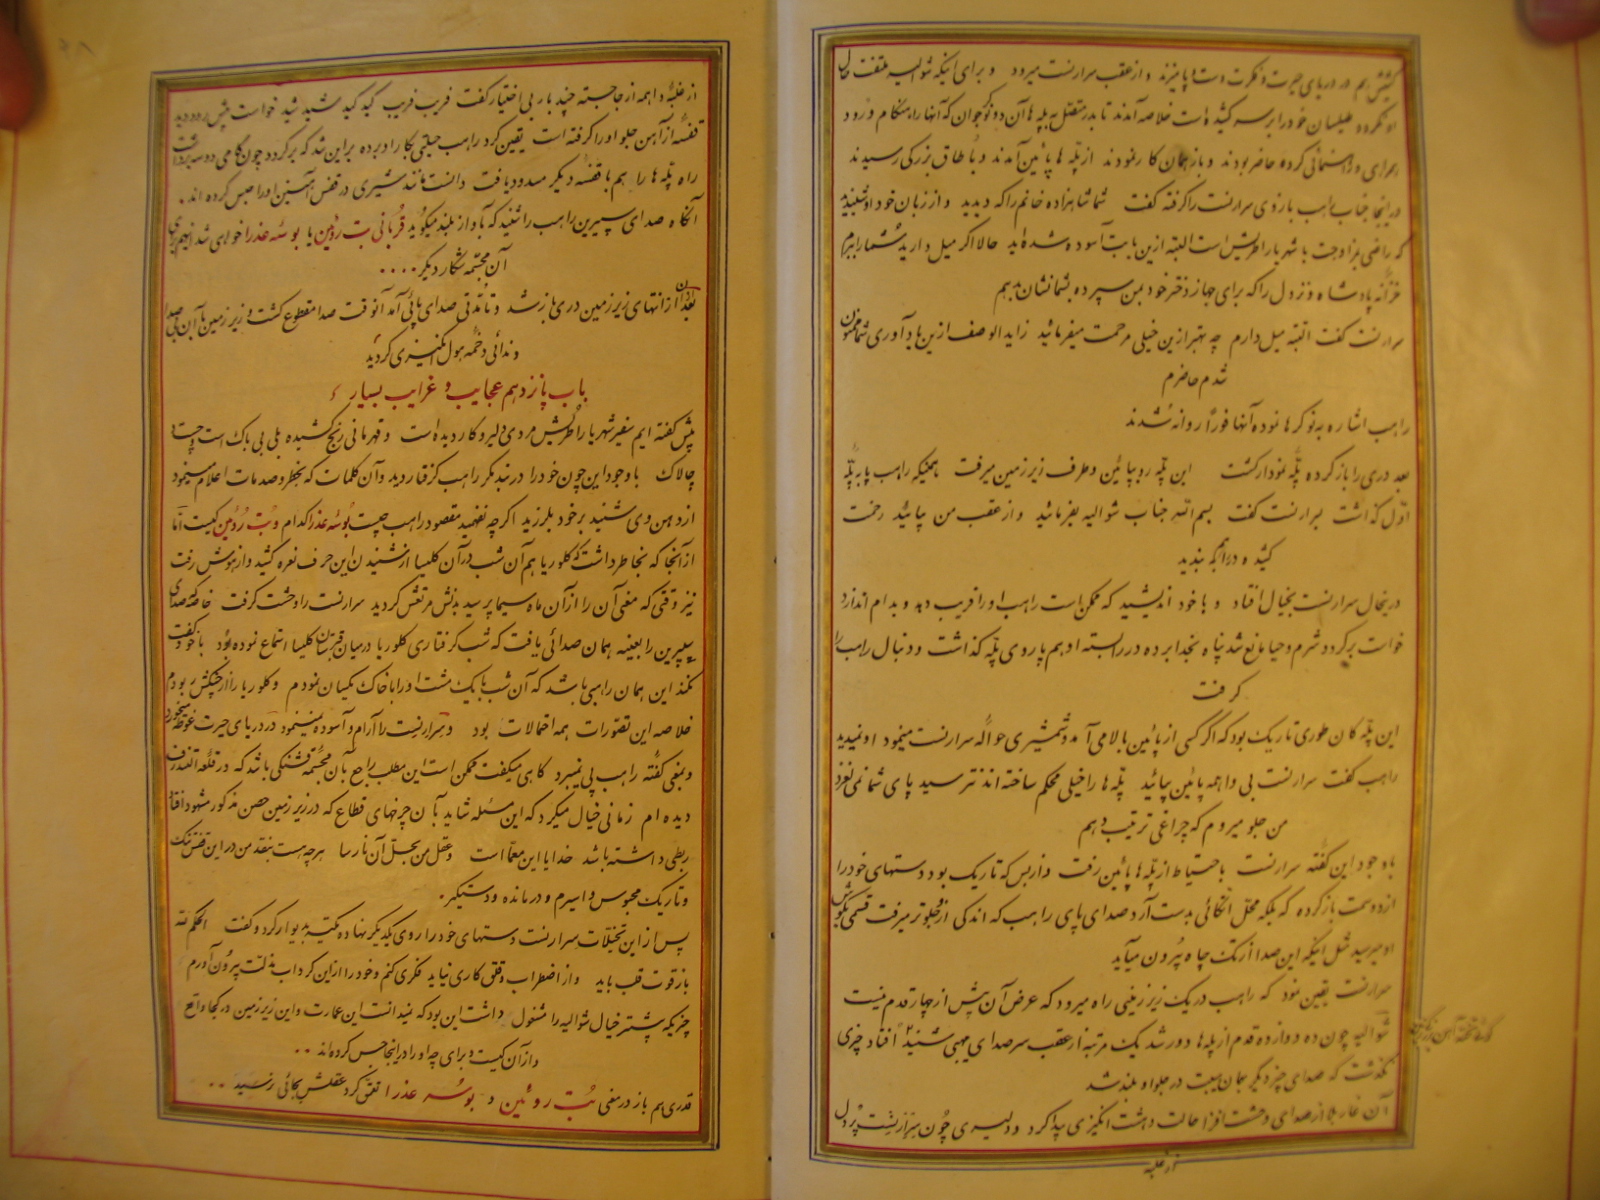 کشیش هم در دریای حیرت و فکرت دست و پا میزند و از عقب سرارنست میرود و برای اینکه شوالیه ملتفت حال
او نگردد طیلسان خود را بر سر کشیده است خلاصه آمدند تا بدر متصل به پله ها آن دو نوجوان که آنها را هنگام ورود
همراهی و راهنمائی کرده حاضر بودند و باز همان کار نمودند از پله ها پائین آمدند و باطاق بزرگی رسیدند
در اینجا جناب راهب بازوی سرارنست را گرفته گفت شما شاهزاده خانم را که دیدید و از زبان خود او شنیدید
که راضی بمزاوجت با شهریار اطریش است البته ازین بابت آسوده شده اید حالا اگر میل دارید شما را ببرم
خزانه پادشاه وزدول را که برای جهاز دختر خود بمن سپرده بشما نشان بدهم
سرارنست گفت البته میل دارم چه بهتر ازین خیلی مرحمت میفرمائید زاید الوصف ازین یادآوری شما ممنون
شدم حاضرم
راهب اشاره به نوکرها نموده آنها فوراً روانه شدند
بعد دری را باز کرده پله نمودار گشت این پله رو بپائین و طرف زیر زمین میرفت همینکه راهب پا به پله
اول گذاشت بسرارنست گفت بسم الله جناب شوالیه بفرمائید و از عقب من بیائید زحمت
کشیده در را هم به بندید
درینحال سرارنست بخیال افتاد و با خود اندیشید که ممکن است راهب او را فریب دهد و بدام اندازد
خواست برگردد شرم و حیا مانع شد پناه بخدا برده در را بسته او هم پا روی پله گذاشت و دنبال راهب را
گرفت
این پله کان طوری تاریک بود که اگر کسی از پائین بالا می آمد و شمشیری حواله سرارنست مینمود او نمیدید
راهب گفت سرارنست بی واهمه پائین بیائید پله ها را خیلی محکم ساخته اند نترسید پای شما نمی لغزد
من جلو میروم که چراغی ترتیب دهم
با وجود این گفته سرارنست باحتیاط از پله ها پائین رفت و از بس که تاریک بود دستهای خود را
از دو سمت باز کرده که بلکه محل اتکائی بدست آرد صدای پای راهب که اندکی از او جلوتر میرفت قسمی بگوش
او میرسید مثل اینکه این صدا از تک چاه بیرون میآید
سرارنست یقین نمود که راهب در یک زیر زمینی راه میرود که عرض آن بیش از چهار قدم نیست
شوالیه چون ده دوازده قدم از پله ها دور شد یک مرتبه از عقب سر صدای مهیبی شنید افتاد چیزی
نگذشت که صدای چیز دیگر بهمان هیبت در جلو او بلند شد
آن غار بلا از صدای وحشت افزا حالت دهشت انگیزی پیدا کرد و دلیری چون سرارنست پر دل
از غلبه
از غلبه و اهمه از جا جسته چند بار بی اختیار گفت فریب فریب کید کید شید شید خواست پیش رود دید
قفسه از آهن جلو او را گرفته است یقین کرد راهب حیلتی بکار او برده بر این شد که برگردد چون گامی دو سه برداشت
راه پله ها را هم با قفسه دیگر مسدود یافت دانست مانند شیری در قفس آهنین او را حبس کرده اند.
آنگاه صدای سیپرین راهب را شنید که بآواز بلند میگوید قربانی بت روئین یا بوسه عذرا خواهی شد اینهم برای
آن مجسمه شکار دیگر....
بعد از آن از انتهای زیر زمین دری باز شد و تا مدتی صدای پائی آمد آنوقت صدا مقطوع گشت و زیر زمین با آن بی صدا
و ندائی دخمه هول انگیزی گردید
باب پانزدهم عجایب و غرایب بسیار
پیش گفته ایم سفیر شهریار اطریش مردی دلیر و کار دیده است و قهرمانی رنج کشیده بلی بی باک است و چست و
چالاک با وجود این چون خود را در بند مکر راهب گرفتار دید و آن کلمات که بخطر و صدمات اعلام مینمود
از دهن وی شنید بر خود بلرزید اگر چه نفهمید مقصود راهب چیست بوسه عذرا کدام و بت روئین کیست اما
از آنجا که بخاطر داشت که کلوریا هم آن شب در آن کلیسا از شنیدن این حرف نعره کشید و از هوش رفت
نیز وقتی که معنی آن را از آن ماه سیما پرسید بدنش مرتعش گردید سرارنست را وحشت گرفت خاصه که صدای
سیپرین را بعینه همان صدائی یافت که شب گرفتاری کلوریا در میان قبرستان کلیسا استماع نموده بود با خود گفت
نکند این همان راهبی باشد که آن شب با یک مشت او را با خاک یکسان نمودم و کلوریا را از چنگش ربودم
خلاصه این تصورات همه احتمالات بود و سرارنست را آرام و آسوده نمینمود در دریای حیرت غوطه میخورد
و بمعنی گفته راهب پی نمیبرد گاهی میگفت ممکن است این مطلب راجع بآن مجسمه قشنگی باشد که در قلعه
دیده ام زمانی خیال میکرد که این مسئله شاید بآن چرخهای قطاع که در زیر زمین حصن مذکور مشهود افتاد
ربطی داشته باشد خدایا این معما است و عقل من بحل آن نارسا هر چه هست بنقد من در این قفس تنگ
و تاریک محبوس و اسیرم و درمانده و دستگیر.
پس از این تخیلات سرارنست دستهای خود را روی یکدیگر نهاده تکیه بدیوار کرد و گفت الحکم لله
باز قوت قلب باید و از اضطراب و قلق کاری نیاید فکری کنم و خود را از این گرداب مذلت بیرون آورم
چیزیکه بیشتر خیال شوالیه را مشغول داشت این بود که نمیدانست این عمارت و این زیر زمین در کجا واقع
و از آن کیست و برای چه او را در اینجا حبس کرده اند ..
قدری هم باز در معنی بت روئین و بوسه عذرا تعمق کرد عقلش بجائی نرسید ..